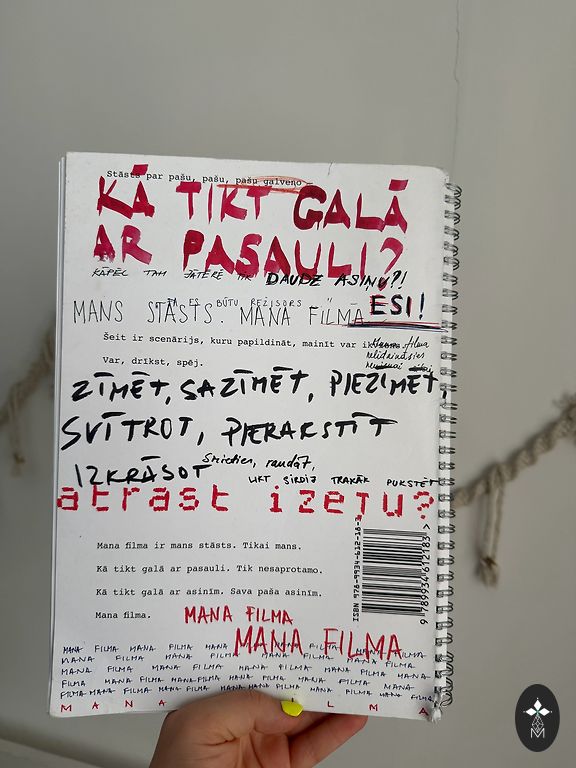 Stāsts par pašu, pašu, pašu galveno —
KĀ TIKT GALĀ
AR PASAULI?
KĀPĒC TAM JĀTĒRĒ TIK DAUDZ ASIŅU?!
JA ES BŪTU REŽISORS
MANS STĀSTS. MANA FILMA ESI!
Šeit ir scenārijs, kuru papildināt, mainīt var ik
filma
Var, drīkst, spēj.
ZĪMĒT, SAZĪMĒT, PIEZĪMĒT,
SVĪTROT, PIERAKSTĪT
IZKRĀSOT Smieties, raudāt,
LIKT SIRDIJ TRAKĀK PUKSTĒT
atrast izeju?
Mana filma ir mans stāsts. Tikai mans.
Kā tikt galā ar pasauli. Tik nesaprotamo.
Kā tikt galā ar asinīm. Sava paša asinīm.
Mana filma. MANA FILMA
MANA FILMA
ISBN 978-9934-612-18-3
9 789934 612183 >
MANA FILMA MANA FILMA MANA FILMA
MANA FILMA MANA FILMA MANA FILMA MANA FILMA
MANA FILMA MANA FILMA MANA FILMA MANA FILMA
FILMA MANA FILMA MANA FILMA MANA FILMA MANA
FILMA MANA FILMA MANA FILMA MANA FILMA MANA FILMA MANA FILMA
MANA ILMA